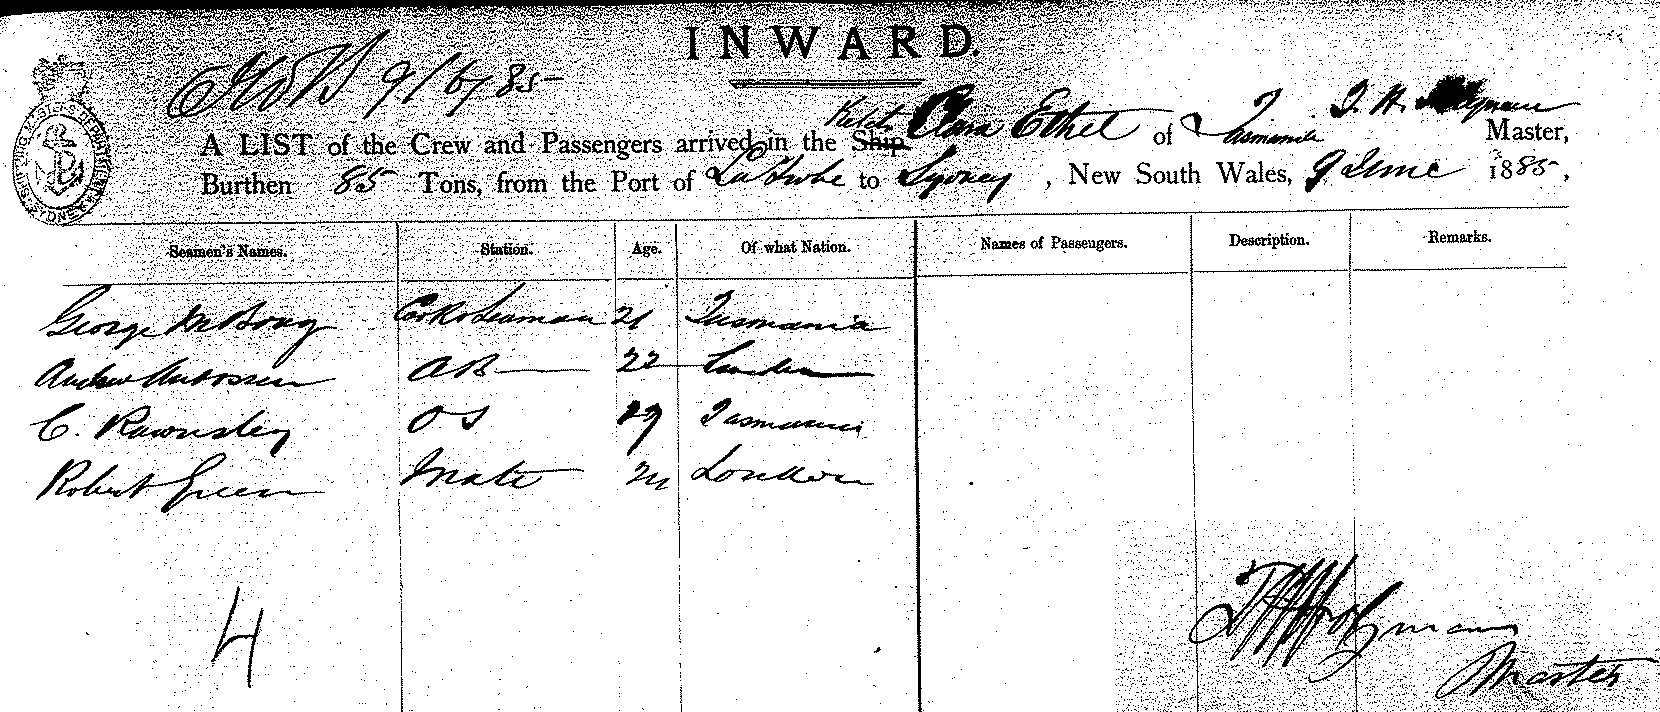 INWARD.
9/6/85
Ketch Clara Ethel T. H.
A LIST of the Crew and Passengers arrived in the Ship of Tasmania Master,
Burthen 85 Tons, from the Port of Latrobe to Sydney, New South Wales, 9 June 1885,
Seamen's Names. Station. Age. Of what Nation. Names of Passengers. Description. Remarks.
George Cook & Seaman 21 Tasmania
Andrew AB 22 London
C. Rawnsley OS Tasmania
Robert Green Mate London
4
Holyman
Master